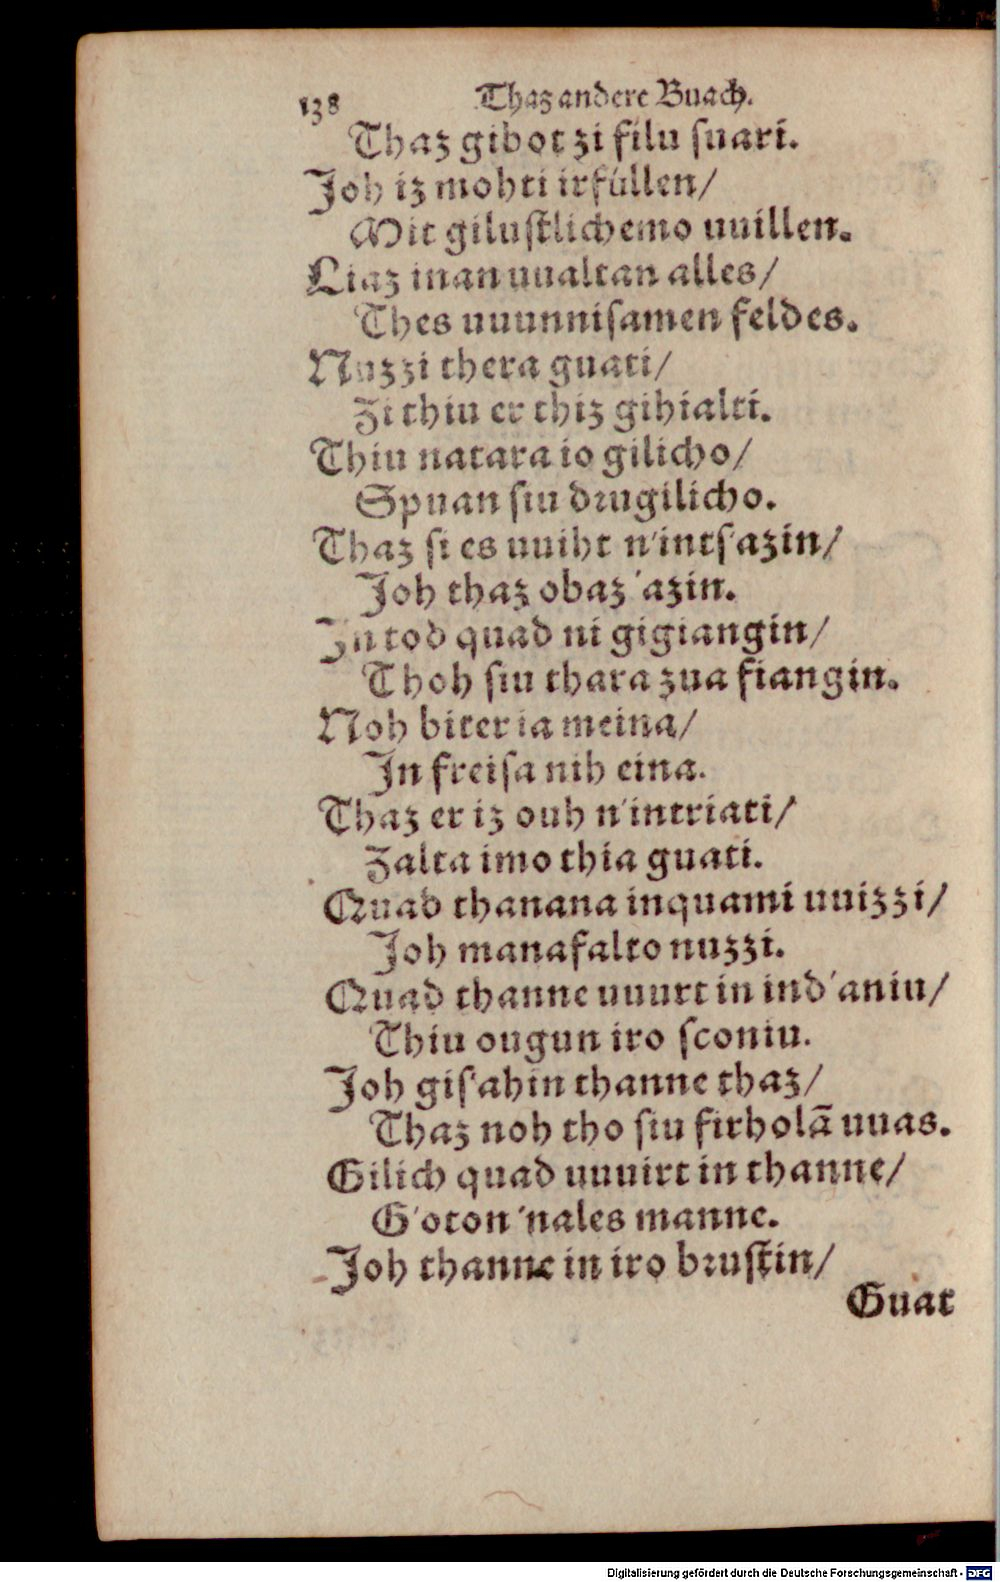 138 Thaz andere Buach.
Thaz gibot zi filu suari.
Joh iz mohti irfullen/
Mit gilustlichemo uuillen.
Liaz inan uualtan alles/
Thes uuunnisamen feldes.
Nuzzi thera guati/
Zi thiu er thiz gihialti.
Thiu natara io gilicho/
Spuan siu drugilicho.
Thaz si es uuiht n'ints'azin/
Joh thaz obaz 'azin.
In tod quad ni gigiangin/
Thoh siu thara zua fiangin.
Noh biter ia meina/
In freisa nih eina.
Thaz er iz ouh n'intriati/
Zalta imo thia guati.
Quad thanana inquami uuizzi/
Joh manafalto nuzzi.
Quad thanne uuurt in ind'aniu/
Thiu ougun iro sconiu.
Joh gis'ahin thanne thaz/
Thaz noh tho siu firholā uuas.
Gilich quad uuuirt in thanne/
G'oton 'nales manne.
Joh thanne in iro brustin/
Guat
Digitalisierung gefördert durch die Deutsche Forschungsgemeinschaft - DFG